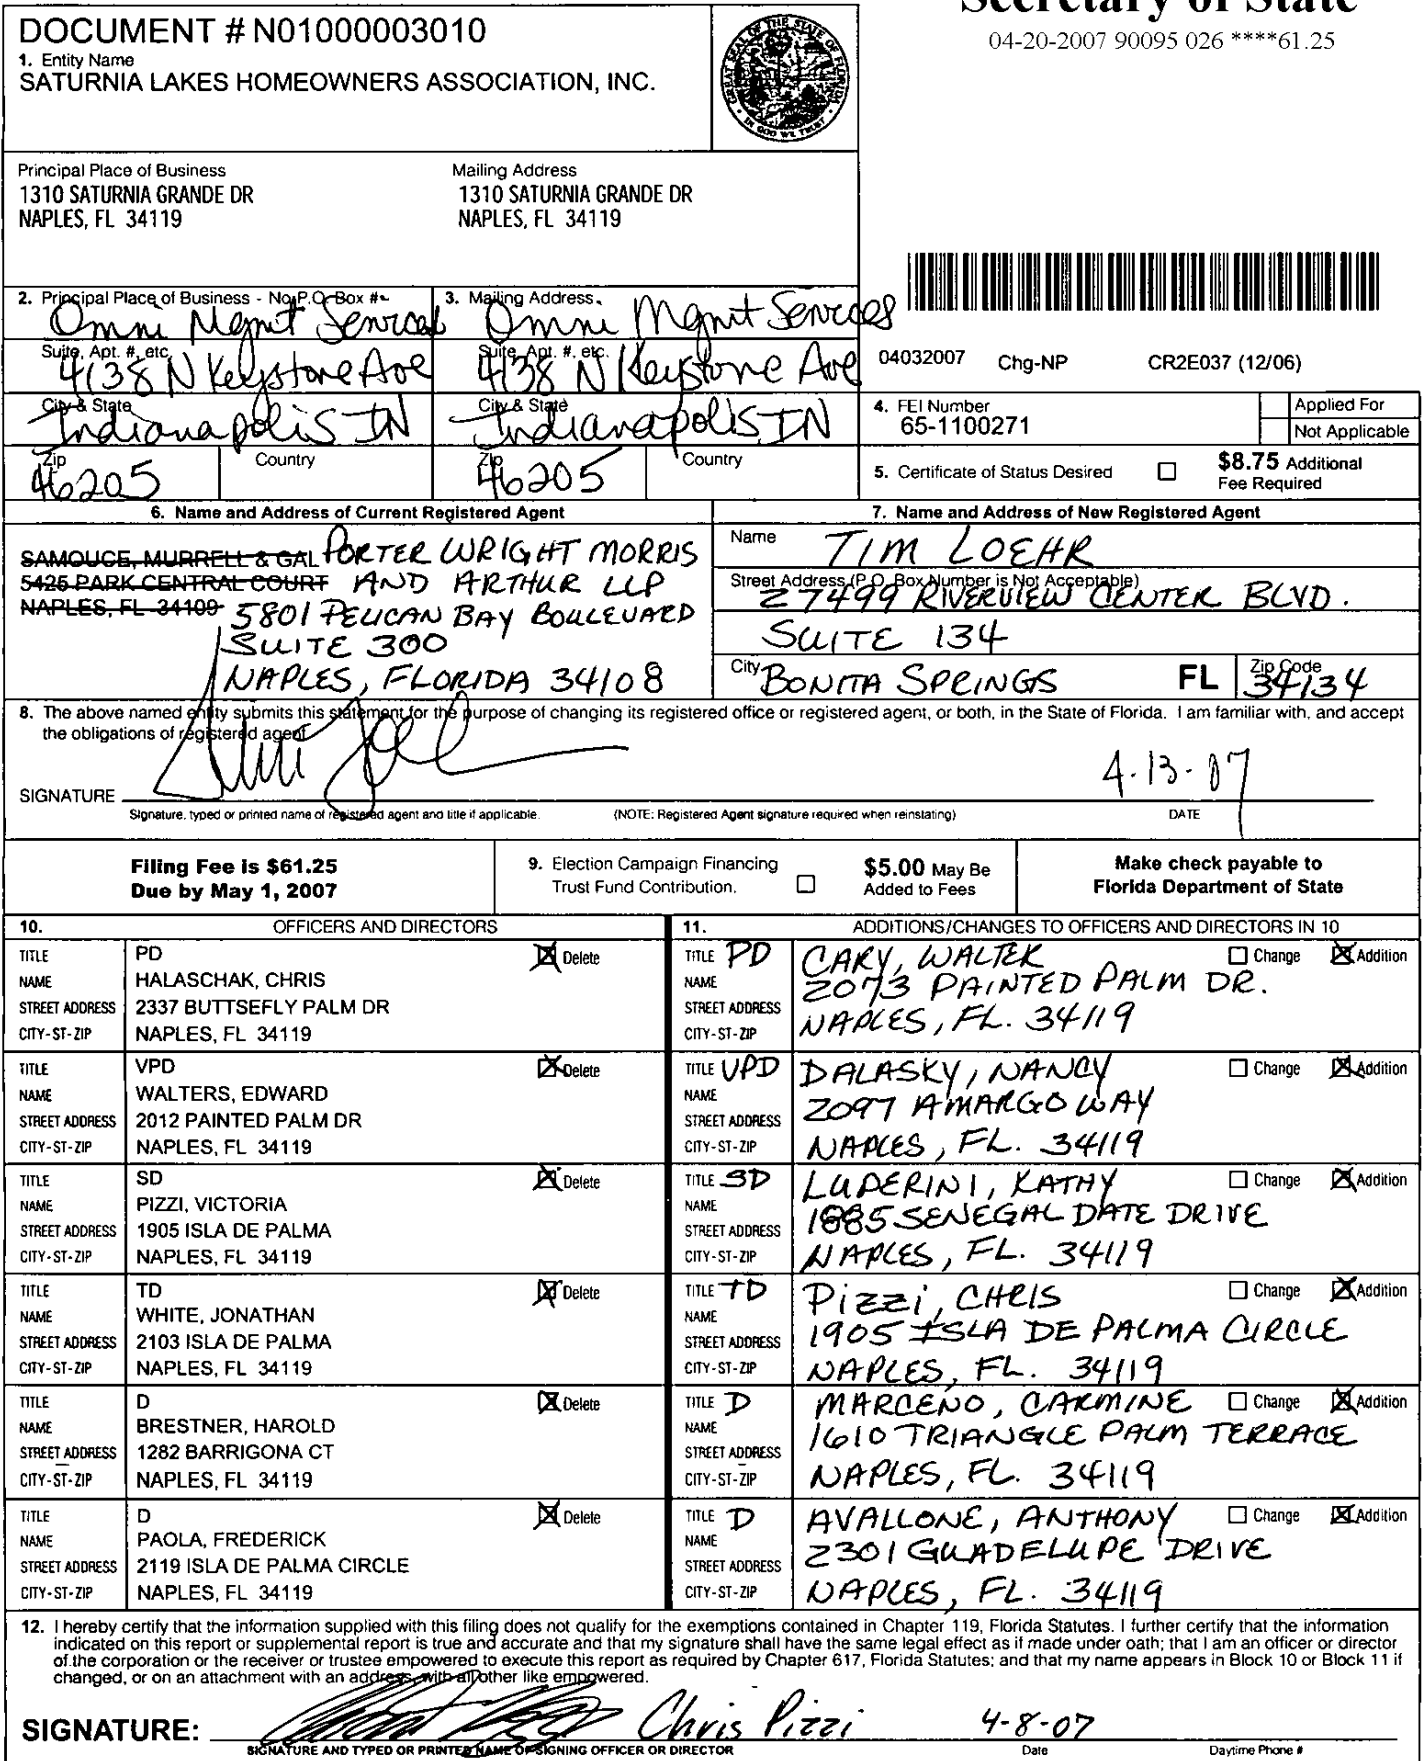 Secretary of State
04-20-2007 90095 026 ****61.25
DOCUMENT # N01000003010
1. Entity Name
SATURNIA LAKES HOMEOWNERS ASSOCIATION, INC.
GREAT SEAL OF THE STATE OF FLORIDA
IN GOD WE TRUST
Principal Place of Business
1310 SATURNIA GRANDE DR
NAPLES, FL 34119
Mailing Address
1310 SATURNIA GRANDE DR
NAPLES, FL 34119
2. Principal Place of Business - No P.O. Box #
Omni Mgmt Services
Suite, Apt. #, etc.
4138 N Keystone Ave
City & State
Indianapolis IN
Zip
46205
Country
3. Mailing Address
Omni Mgmt Services
Suite, Apt. #, etc.
4138 N Keystone Ave
City & State
Indianapolis IN
Zip
46205
Country
04032007 Chg-NP CR2E037 (12/06)
4. FEI Number
65-1100271
Applied For
Not Applicable
5. Certificate of Status Desired
$8.75 Additional
Fee Required
6. Name and Address of Current Registered Agent
SAMOUCE, MURRELL & GAL
5425 PARK CENTRAL COURT
NAPLES, FL 34109
PORTER WRIGHT MORRIS
AND ARTHUR LLP
5801 PELICAN BAY BOULEVARD
SUITE 300
NAPLES, FLORIDA 34108
7. Name and Address of New Registered Agent
Name
TIM LOEHR
Street Address (P.O. Box Number is Not Acceptable)
27499 RIVERVIEW CENTER BLVD.
SUITE 134
City BONITA SPRINGS FL Zip Code 34134
8. The above named entity submits this statement for the purpose of changing its registered office or registered agent, or both, in the State of Florida. I am familiar with, and accept
the obligations of registered agent.
SIGNATURE
4-13-07
Signature, typed or printed name of registered agent and title if applicable.
(NOTE: Registered Agent signature required when reinstating)
DATE
Filing Fee is $61.25
Due by May 1, 2007
9. Election Campaign Financing
Trust Fund Contribution.
$5.00 May Be
Added to Fees
Make check payable to
Florida Department of State
10. OFFICERS AND DIRECTORS
TITLE PD Delete
NAME HALASCHAK, CHRIS
STREET ADDRESS 2337 BUTTSEFLY PALM DR
CITY-ST-ZIP NAPLES, FL 34119
TITLE VPD Delete
NAME WALTERS, EDWARD
STREET ADDRESS 2012 PAINTED PALM DR
CITY-ST-ZIP NAPLES, FL 34119
TITLE SD Delete
NAME PIZZI, VICTORIA
STREET ADDRESS 1905 ISLA DE PALMA
CITY-ST-ZIP NAPLES, FL 34119
TITLE TD Delete
NAME WHITE, JONATHAN
STREET ADDRESS 2103 ISLA DE PALMA
CITY-ST-ZIP NAPLES, FL 34119
TITLE D Delete
NAME BRESTNER, HAROLD
STREET ADDRESS 1282 BARRIGONA CT
CITY-ST-ZIP NAPLES, FL 34119
TITLE D Delete
NAME PAOLA, FREDERICK
STREET ADDRESS 2119 ISLA DE PALMA CIRCLE
CITY-ST-ZIP NAPLES, FL 34119
11. ADDITIONS/CHANGES TO OFFICERS AND DIRECTORS IN 10
TITLE PD Change Addition
NAME CARY, WALTER
STREET ADDRESS 2073 PAINTED PALM DR.
CITY-ST-ZIP NAPLES, FL. 34119
TITLE VPD Change Addition
NAME DALASKY, NANCY
STREET ADDRESS 2097 AMARGO WAY
CITY-ST-ZIP NAPLES, FL. 34119
TITLE SD Change Addition
NAME LUPERINI, KATHY
STREET ADDRESS 1885 SENEGAL DATE DRIVE
CITY-ST-ZIP NAPLES, FL. 34119
TITLE TD Change Addition
NAME Pizzi, CHRIS
STREET ADDRESS 1905 ISLA DE PALMA CIRCLE
CITY-ST-ZIP NAPLES, FL. 34119
TITLE D Change Addition
NAME MARCENO, CARMINE
STREET ADDRESS 1610 TRIANGLE PALM TERRACE
CITY-ST-ZIP NAPLES, FL. 34119
TITLE D Change Addition
NAME AVALLONE, ANTHONY
STREET ADDRESS 2301 GUADELUPE DRIVE
CITY-ST-ZIP NAPLES, FL. 34119
12. I hereby certify that the information supplied with this filing does not qualify for the exemptions contained in Chapter 119, Florida Statutes. I further certify that the information
indicated on this report or supplemental report is true and accurate and that my signature shall have the same legal effect as if made under oath; that I am an officer or director
of the corporation or the receiver or trustee empowered to execute this report as required by Chapter 617, Florida Statutes; and that my name appears in Block 10 or Block 11 if
changed, or on an attachment with an address, with all other like empowered.
SIGNATURE: Chris Pizzi 4-8-07
SIGNATURE AND TYPED OR PRINTED NAME OF SIGNING OFFICER OR DIRECTOR
Date
Daytime Phone #